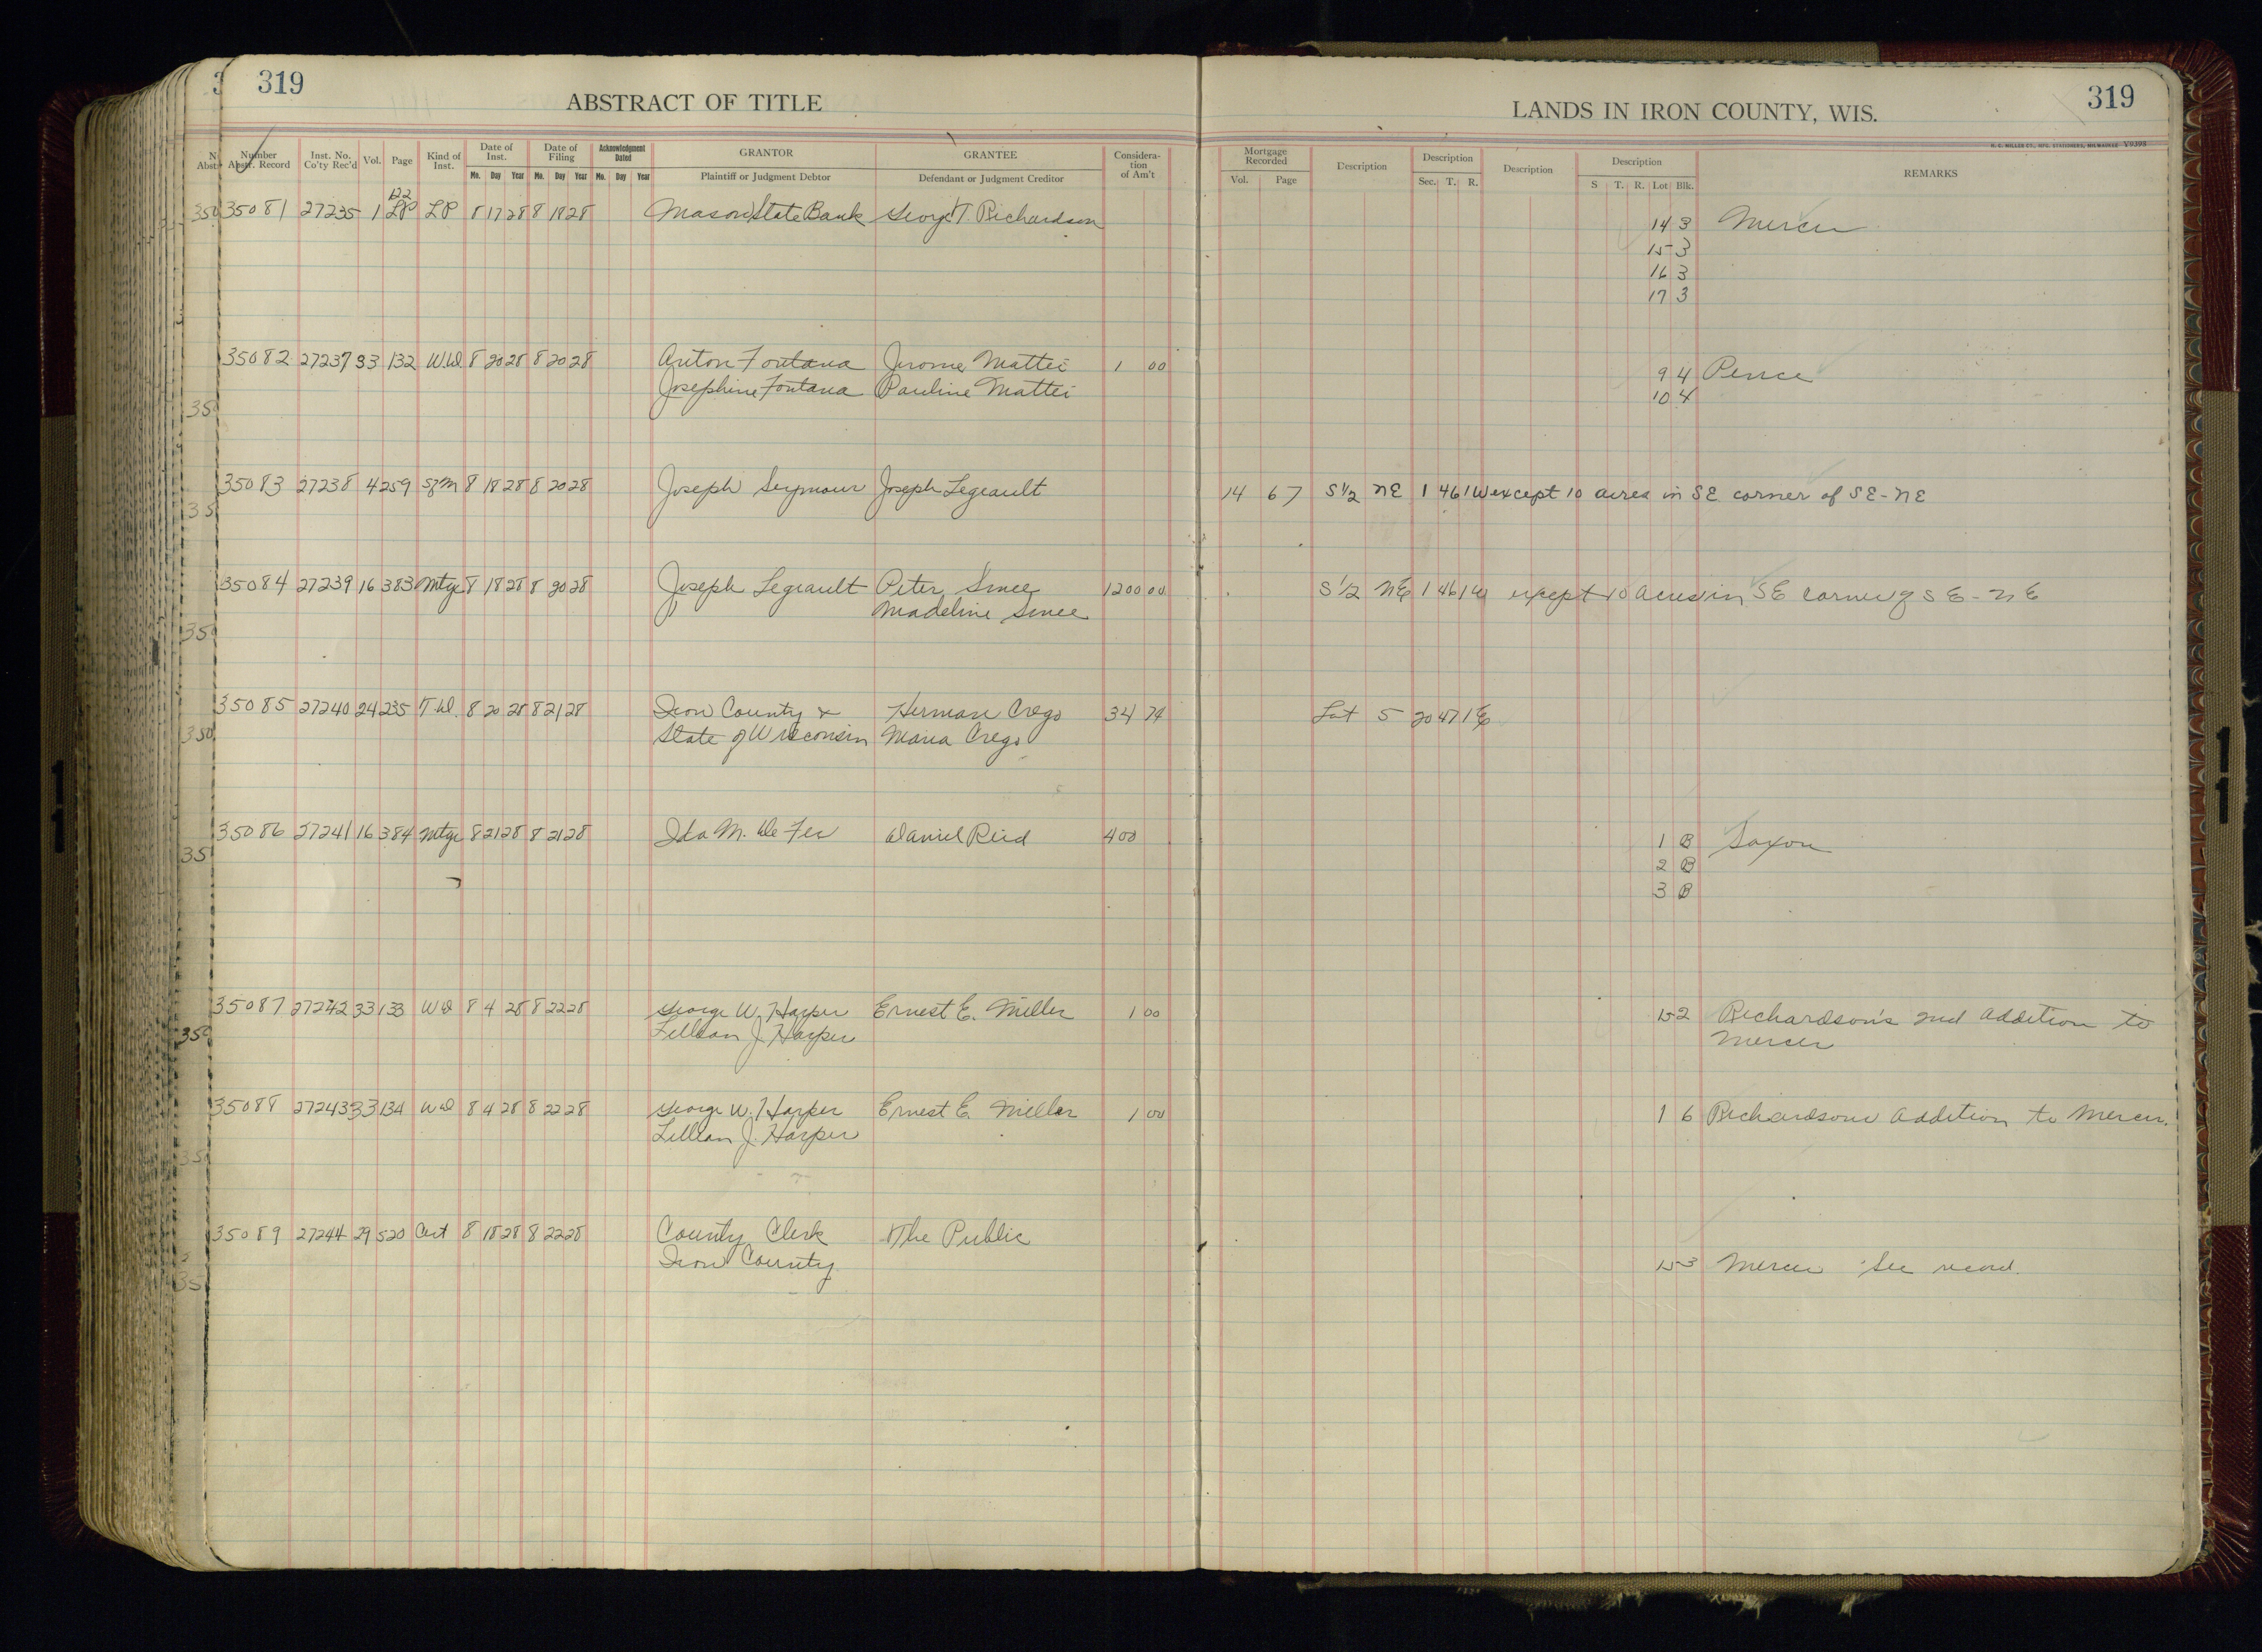 319
ABSTRACT OF TITLE
LANDS IN IRON COUNTY, WIS.
319
H. C. MILLER CO., MFG. STATIONERS, MILWAUKEE V9393
Number Abstr. Record Inst. No. Co'ty Rec'd Vol. Page Kind of Inst. Date of Inst. Mo. Day Year Date of Filing Mo. Day Year Acknowledgment Dated Mo. Day Year GRANTOR Plaintiff or Judgment Debtor GRANTEE Defendant or Judgment Creditor Considera-tion of Am't Mortgage Recorded Vol. Page Description Description Sec. T. R. Description Description S T. R. Lot Blk. REMARKS
122
35081 27235 1 LP LP 8 17 28 8 18 28 Mason State Bank George T. Richardson 14 3 Mercer
15 3
16 3
17 3
35082 27237 33 132 WD 8 20 28 8 20 28 Anton Fontana Jerome Mattei 1 00 9 4 Pence
Josephine Fontana Pauline Mattei 10 4
35083 27238 4 259 SfM 8 18 28 8 20 28 Joseph Seymour Joseph Legeault 14 67 S 1/2 NE 1 46 1W except 10 acres in SE corner of SE-NE
35084 27239 16 383 Mtge 8 18 28 8 20 28 Joseph Legeault Peter Smee 1200 00 S 1/2 NE 1 46 1W except 10 acres in SE corner of SE-NE
Madeline Smee
35085 27240 24 235 T.D. 8 20 28 8 21 28 Iron County & Herman Crego 34 74 Lot 5 20 47 1E
State of Wisconsin Maria Crego
35086 27241 16 384 Mtge 8 21 28 8 21 28 Ida M. De Fer Daniel Reid 400 1 B Saxon
2 B
3 B
35087 27242 33 133 WD 8 4 28 8 22 28 George W. Harper Ernest E. Miller 1 00 15 2 Richardson's 2nd Addition to
Lillian J. Harper Mercer
35088 27243 33 134 WD 8 4 28 8 22 28 George W. Harper Ernest E. Miller 1 00 1 6 Richardsons Addition to Mercer.
Lillian J. Harper
35089 27244 29 520 Cert 8 18 28 8 22 28 County Clerk The Public
Iron County 15 3 Mercer See record.